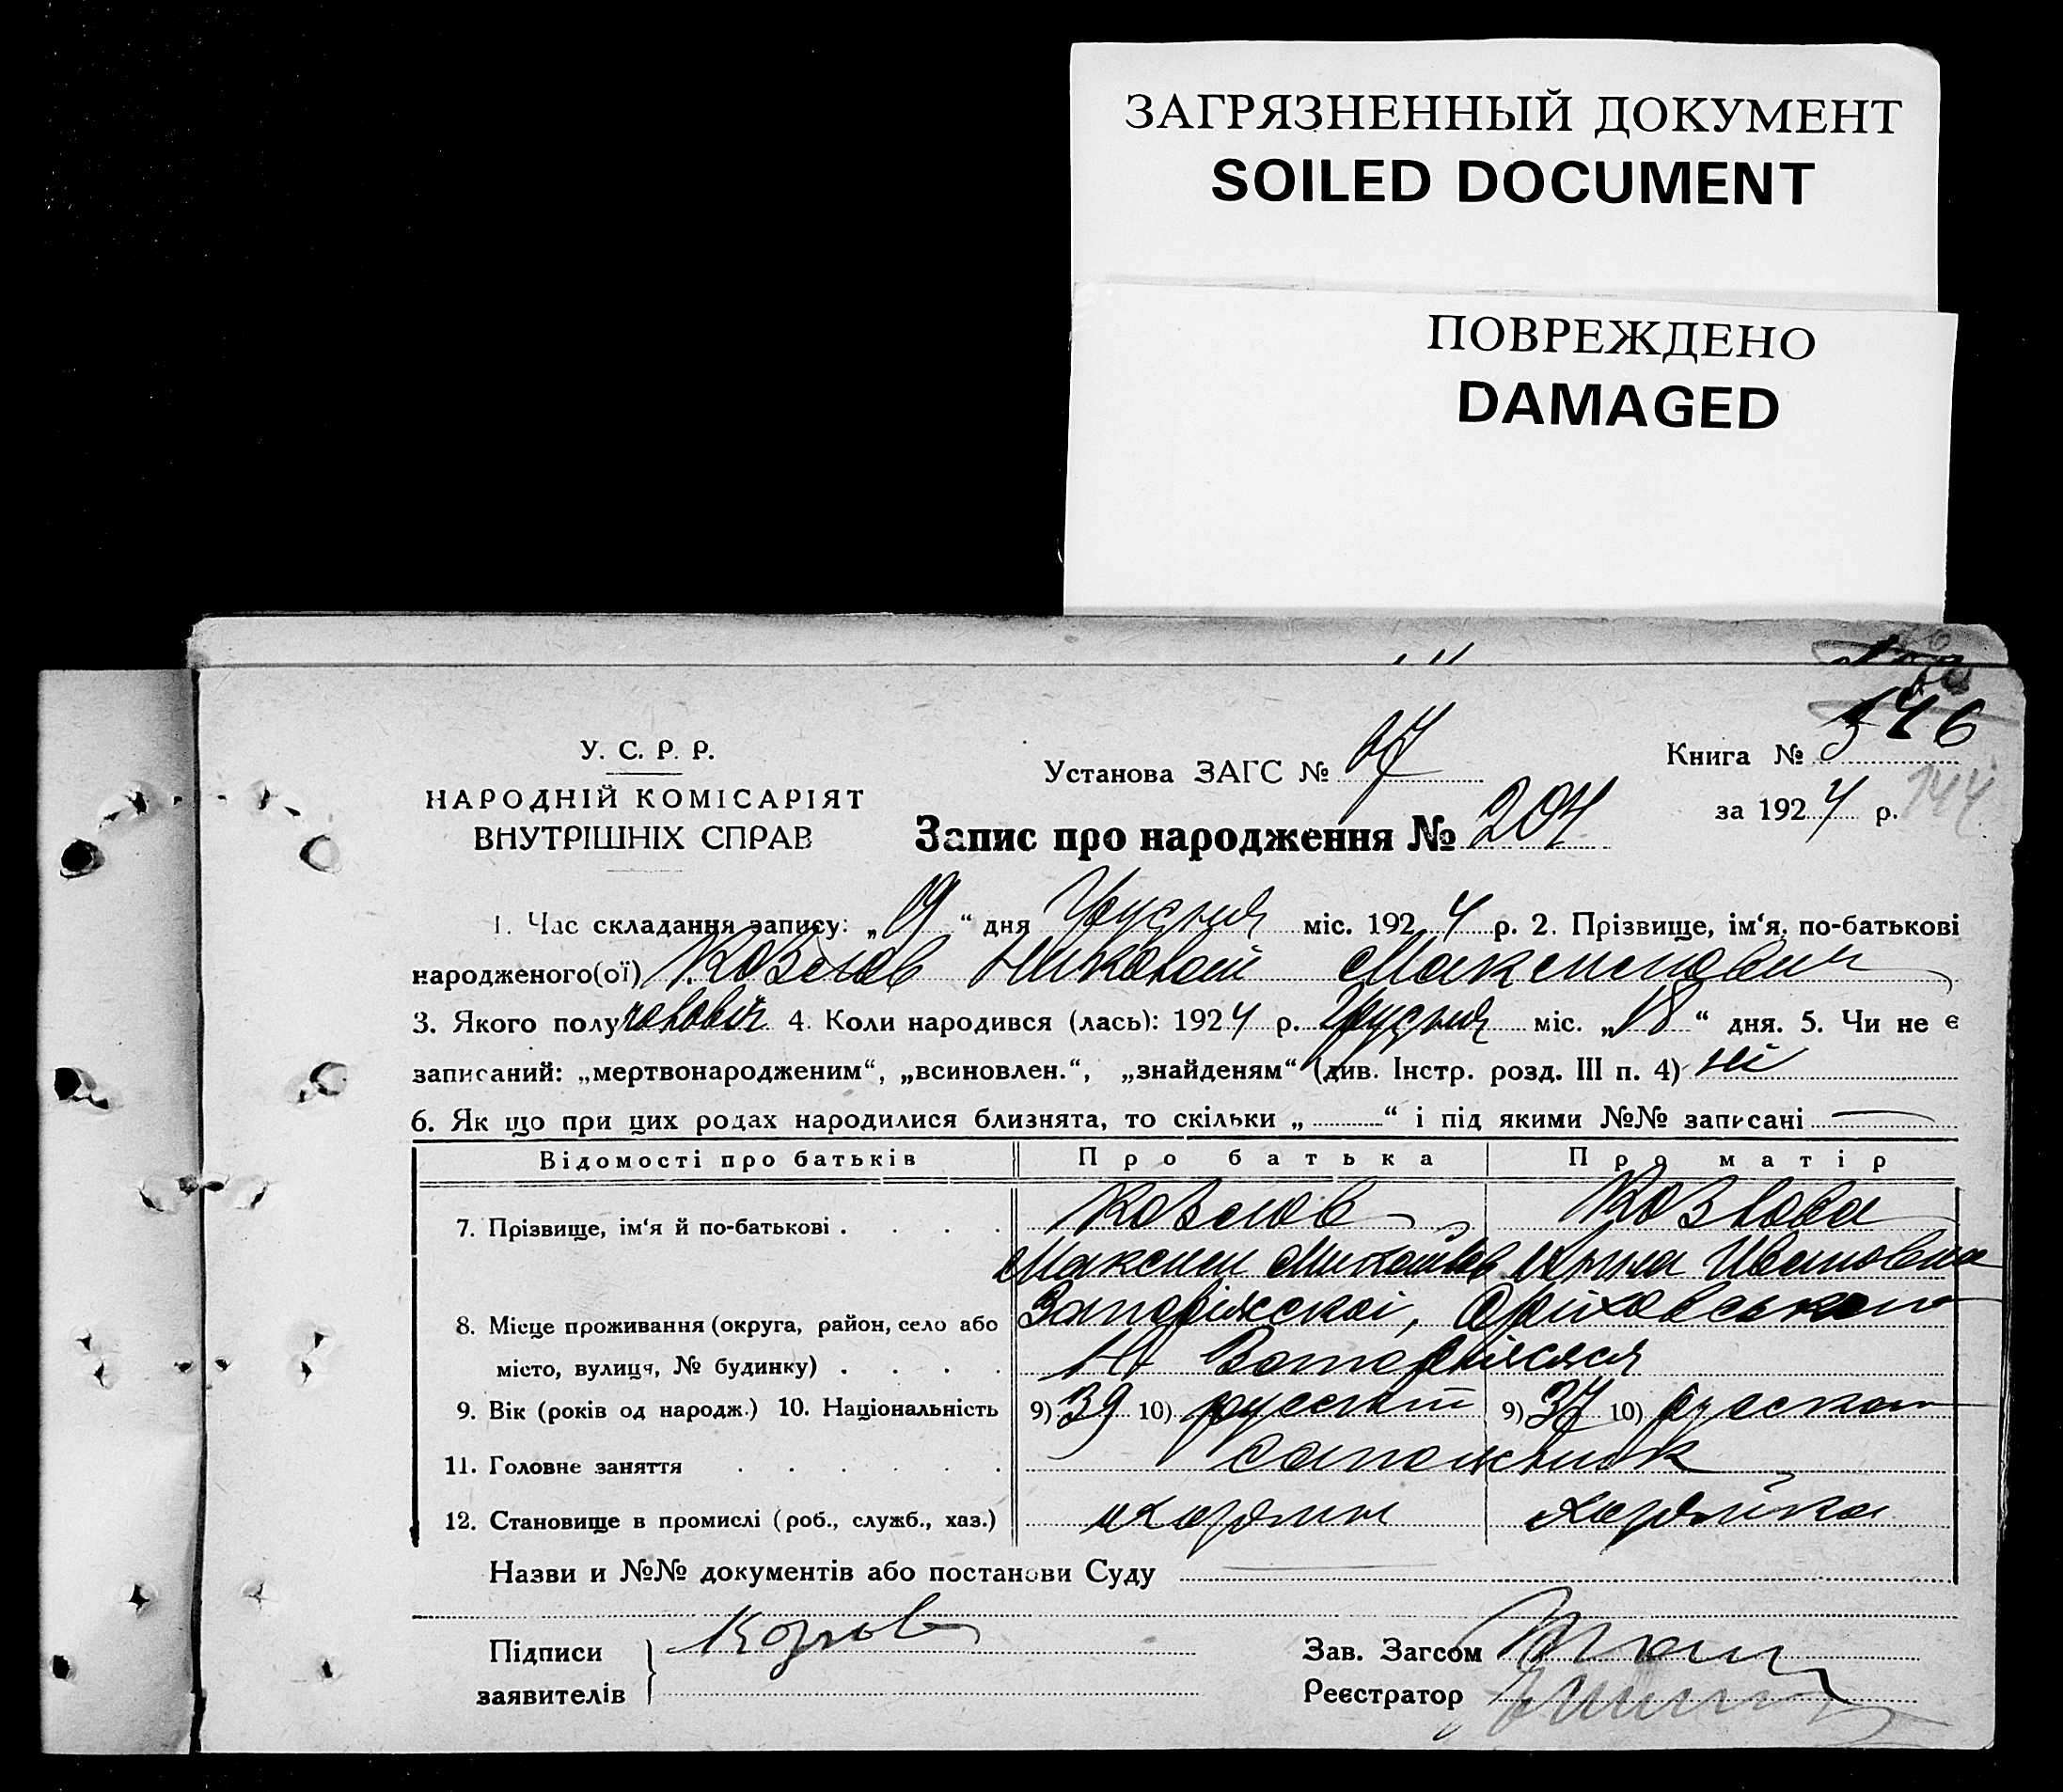 ЗАГРЯЗНЕННЫЙ ДОКУМЕНТ
SOILED DOCUMENT
ПОВРЕЖДЕНО
DAMAGED
У. С. Р. Р.
НАРОДНІЙ КОМІСАРІЯТ
ВНУТРІШНІХ СПРАВ
Установа ЗАГС №
Книга № 3 146
за 1924 р. 144
Запис про народження № 204
1. Час складання запису: „19“ дня Грудня міс. 1924 р. 2. Прізвище, ім‘я, по-батькові
народженого(ої) Козлов Николай Максимович
3. Якого полу чоловіч 4. Коли народився (лась): 1924 р. Грудня міс. „18“ дня. 5. Чи не є
записаний: „мертвонародженим“, „всиновлен.“, „знайденям“ (див. Інстр. розд. III п. 4) ні
6. Як що при цих родах народилися близнята, то скільки „ “ і під якими №№ записані
Відомості про батьків Про батька Про матір
7. Прізвище, ім‘я й по-батькові Козлов Козлова
Максим Ивановна
8. Місце проживання (округа, район, село або Запоріжскої, Оріховського
місто, вулиця, № будинку)
9. Вік (років од народж.) 10. Національність 9) 39 10) русский 9) 37 10) русская
11. Головне заняття сапожник
12. Становище в промислі (роб., служб., хаз.) хазяин хазяйка
Назви и №№ документів або постанови Суду
Підписи Козлов Зав. Загсом
заявителів Реєстратор